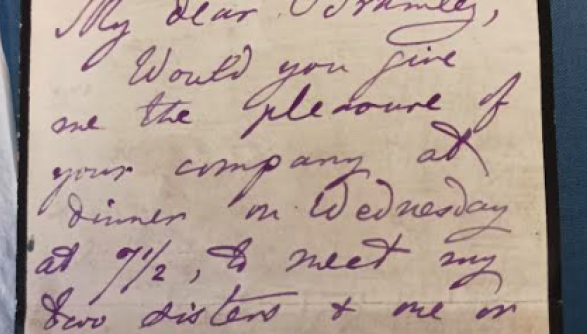 My dear Bramley,
Would you give
me the pleasure of
your company at
dinner on Wednesday
at 7 1/2, to meet my
two sisters & one or